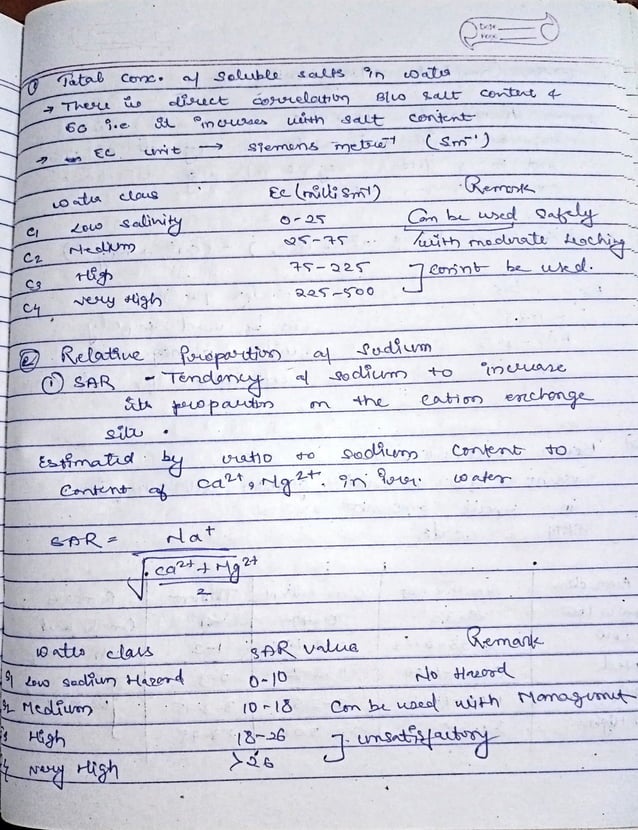 Date
① Total Conc. of Soluble salts in water
→ There is direct correlation B/w salt content &
EC i.e it increases with salt content
→ EC unit → siemens metre⁻¹ (Sm⁻¹)
water class EC (milli Sm⁻¹) Remark
C1 Low salinity 0-25 Can be used safely
C2 Medium 25-75 with moderate leaching
C3 High 75-225
C4 very High 225-500 be used.
② Relative Proportion of Sodium
① SAR - Tendency of sodium to increase
its proportion on the cation exchange
site.
Estimated by ratio to sodium content to
content of Ca²⁺, Mg²⁺ in Irr. water
SAR = Na⁺
√ Ca²⁺ + Mg²⁺
2
water class SAR value Remark
S1 Low sodium Hazard 0-10 No Hazard
S2 Medium 10-18 Can be used with Management
High 18-26 unsatisfactory
very High >26